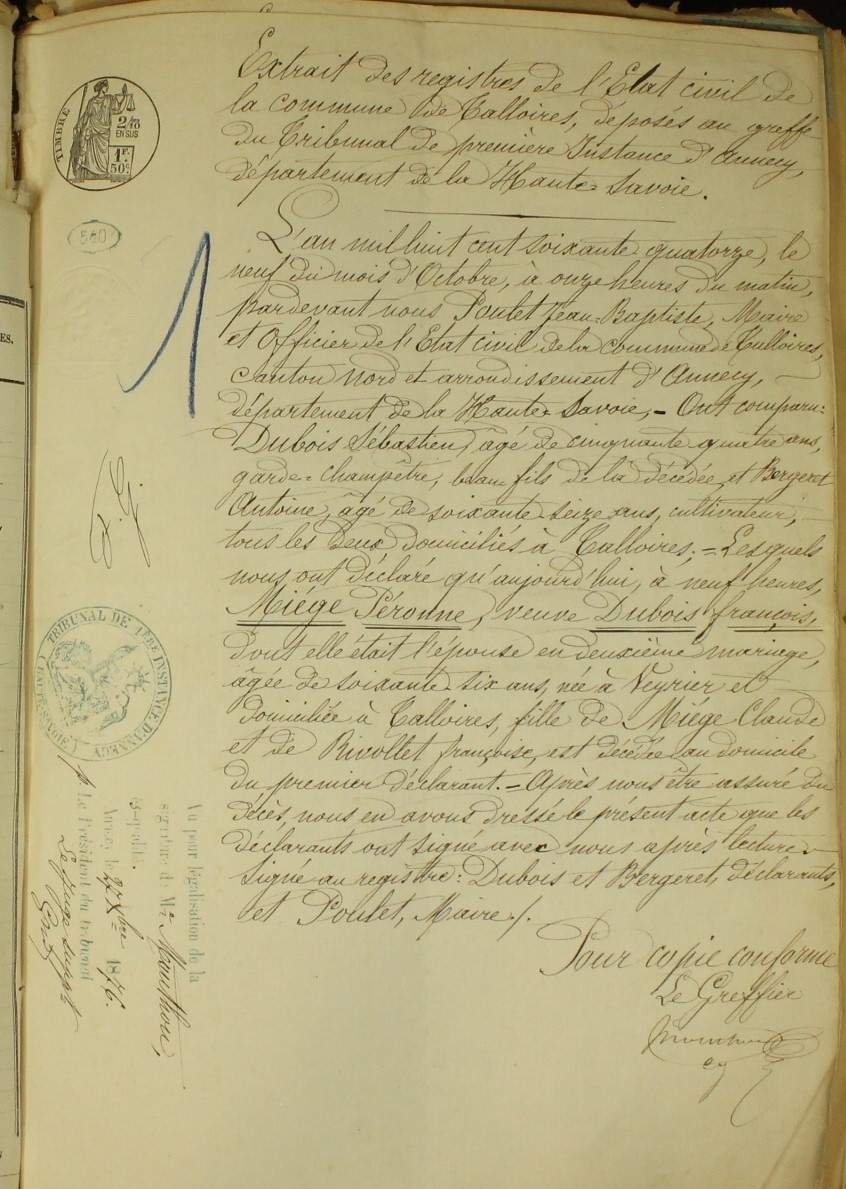 TIMBRE
2/10
EN SUS
1F.
50c.
560
Extrait des registres de l'Etat civil de
la commune de Talloires, déposés au greffe
du Tribunal de première Instance d'Annecy,
département de la Haute-Savoie.
L'an mil huit cent soixante quatorze, le
neuf du mois d'Octobre, à onze heures du matin,
pardevant nous Poulet Jean-Baptiste, Maire
et Officier de l'Etat civil de la commune de Talloires,
canton nord et arrondissement d'Annecy,
département de la Haute-Savoie, - Ont comparu:
Dubois Sébastien, âgé de cinquante quatre ans,
garde-champêtre, beau fils de la décédée, et Bergeret
Antoine, âgé de soixante seize ans, cultivateur,
tous les deux domiciliés à Talloires. = Lesquels
nous ont déclaré qu'aujourd'hui, à neuf heures,
Miége Péronne, veuve Dubois françois,
dont elle était l'épouse en deuxième mariage,
âgée de soixante six ans, née à Veyrier et
domiciliée à Talloires, fille de Miége Claude
et de Rivollet françoise, est décédée au domicile
du premier déclarant. - Après nous être assuré du
décès, nous en avons dressé le présent acte que les
déclarants ont signé avec nous après lecture -
Signé au registre: Dubois et Bergeret, déclarants,
et Poulet, Maire /.
Pour copie conforme
Le Greffier
TRIBUNAL DE 1ERE INSTANCE D'ANNECY
(HTE SAVOIE)
Vu pour légalisation de la
signature de Me Monthou,
ci-
Annecy, le 27 Xbre 1876.
p. Le Président du tribunal
Le juge suppt